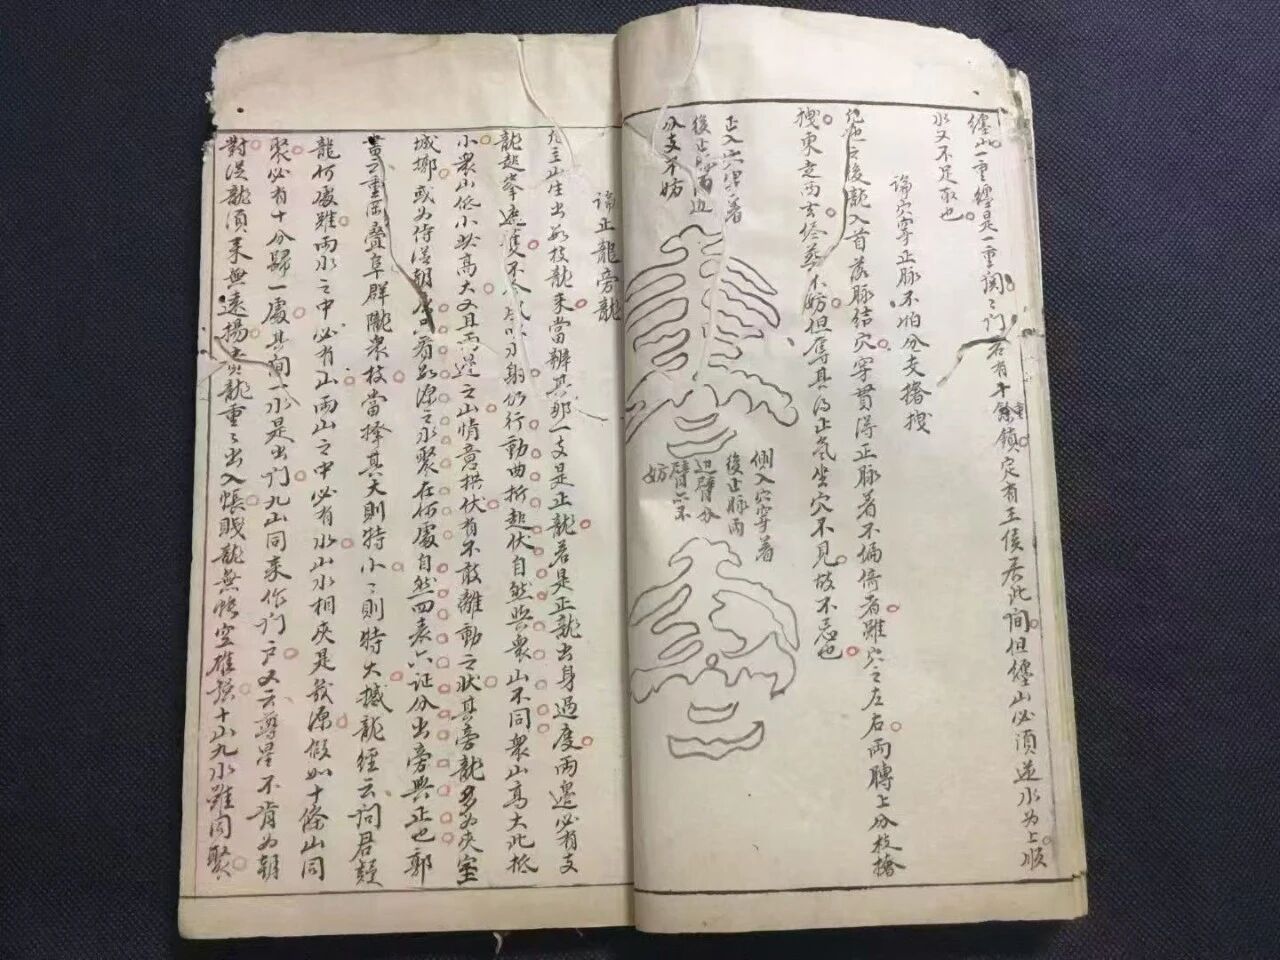 纏山一重纏是一重関〻門若有十重鎖定有王侯居此間但纏山必須逆水為上順
水又不足取也
論穴穿正脉不怕分支擄拽
之後龍入首落脉結穴穿貫得正脉著不偏倚者雖穴之左右兩膊上分枝擄
拽東走西去侭葬不妨但奪其的止氣坐穴不見故不忌也
正入穴穿著
後正脉兩边
分支不妨
側入穴穿著
後正脉兩
边臂分
臂亦不
妨
論正龍旁龍
凡主山生出數枝龍来當辨其那一支是正龍若是正龍出身過度兩邊必有支
龍起峯遮護不令風吹水射仍行動曲折起伏自然與衆山不同衆山高大此抵
小衆山低小此高大又且両邉之山情意拱伏有不敢離動之状其旁龍多為夾室
城墎或為侍從朝應只看此源之水聚在何處自然四表六証分出旁與正也郭
云重岡疊阜群隴衆枝當擇其大則特小〻則特大撼龍經云問君疑
龍何處難兩水之中必有山兩山之中必有水山水相夾是我源假如十條山同
聚必有十分歸一處其間一水是出門九山同来作门户又云尊星不肯為朝
對從龍須来無遠揚貴龍重〻出入帳賤龍無帳空雄強十山九水雖同聚